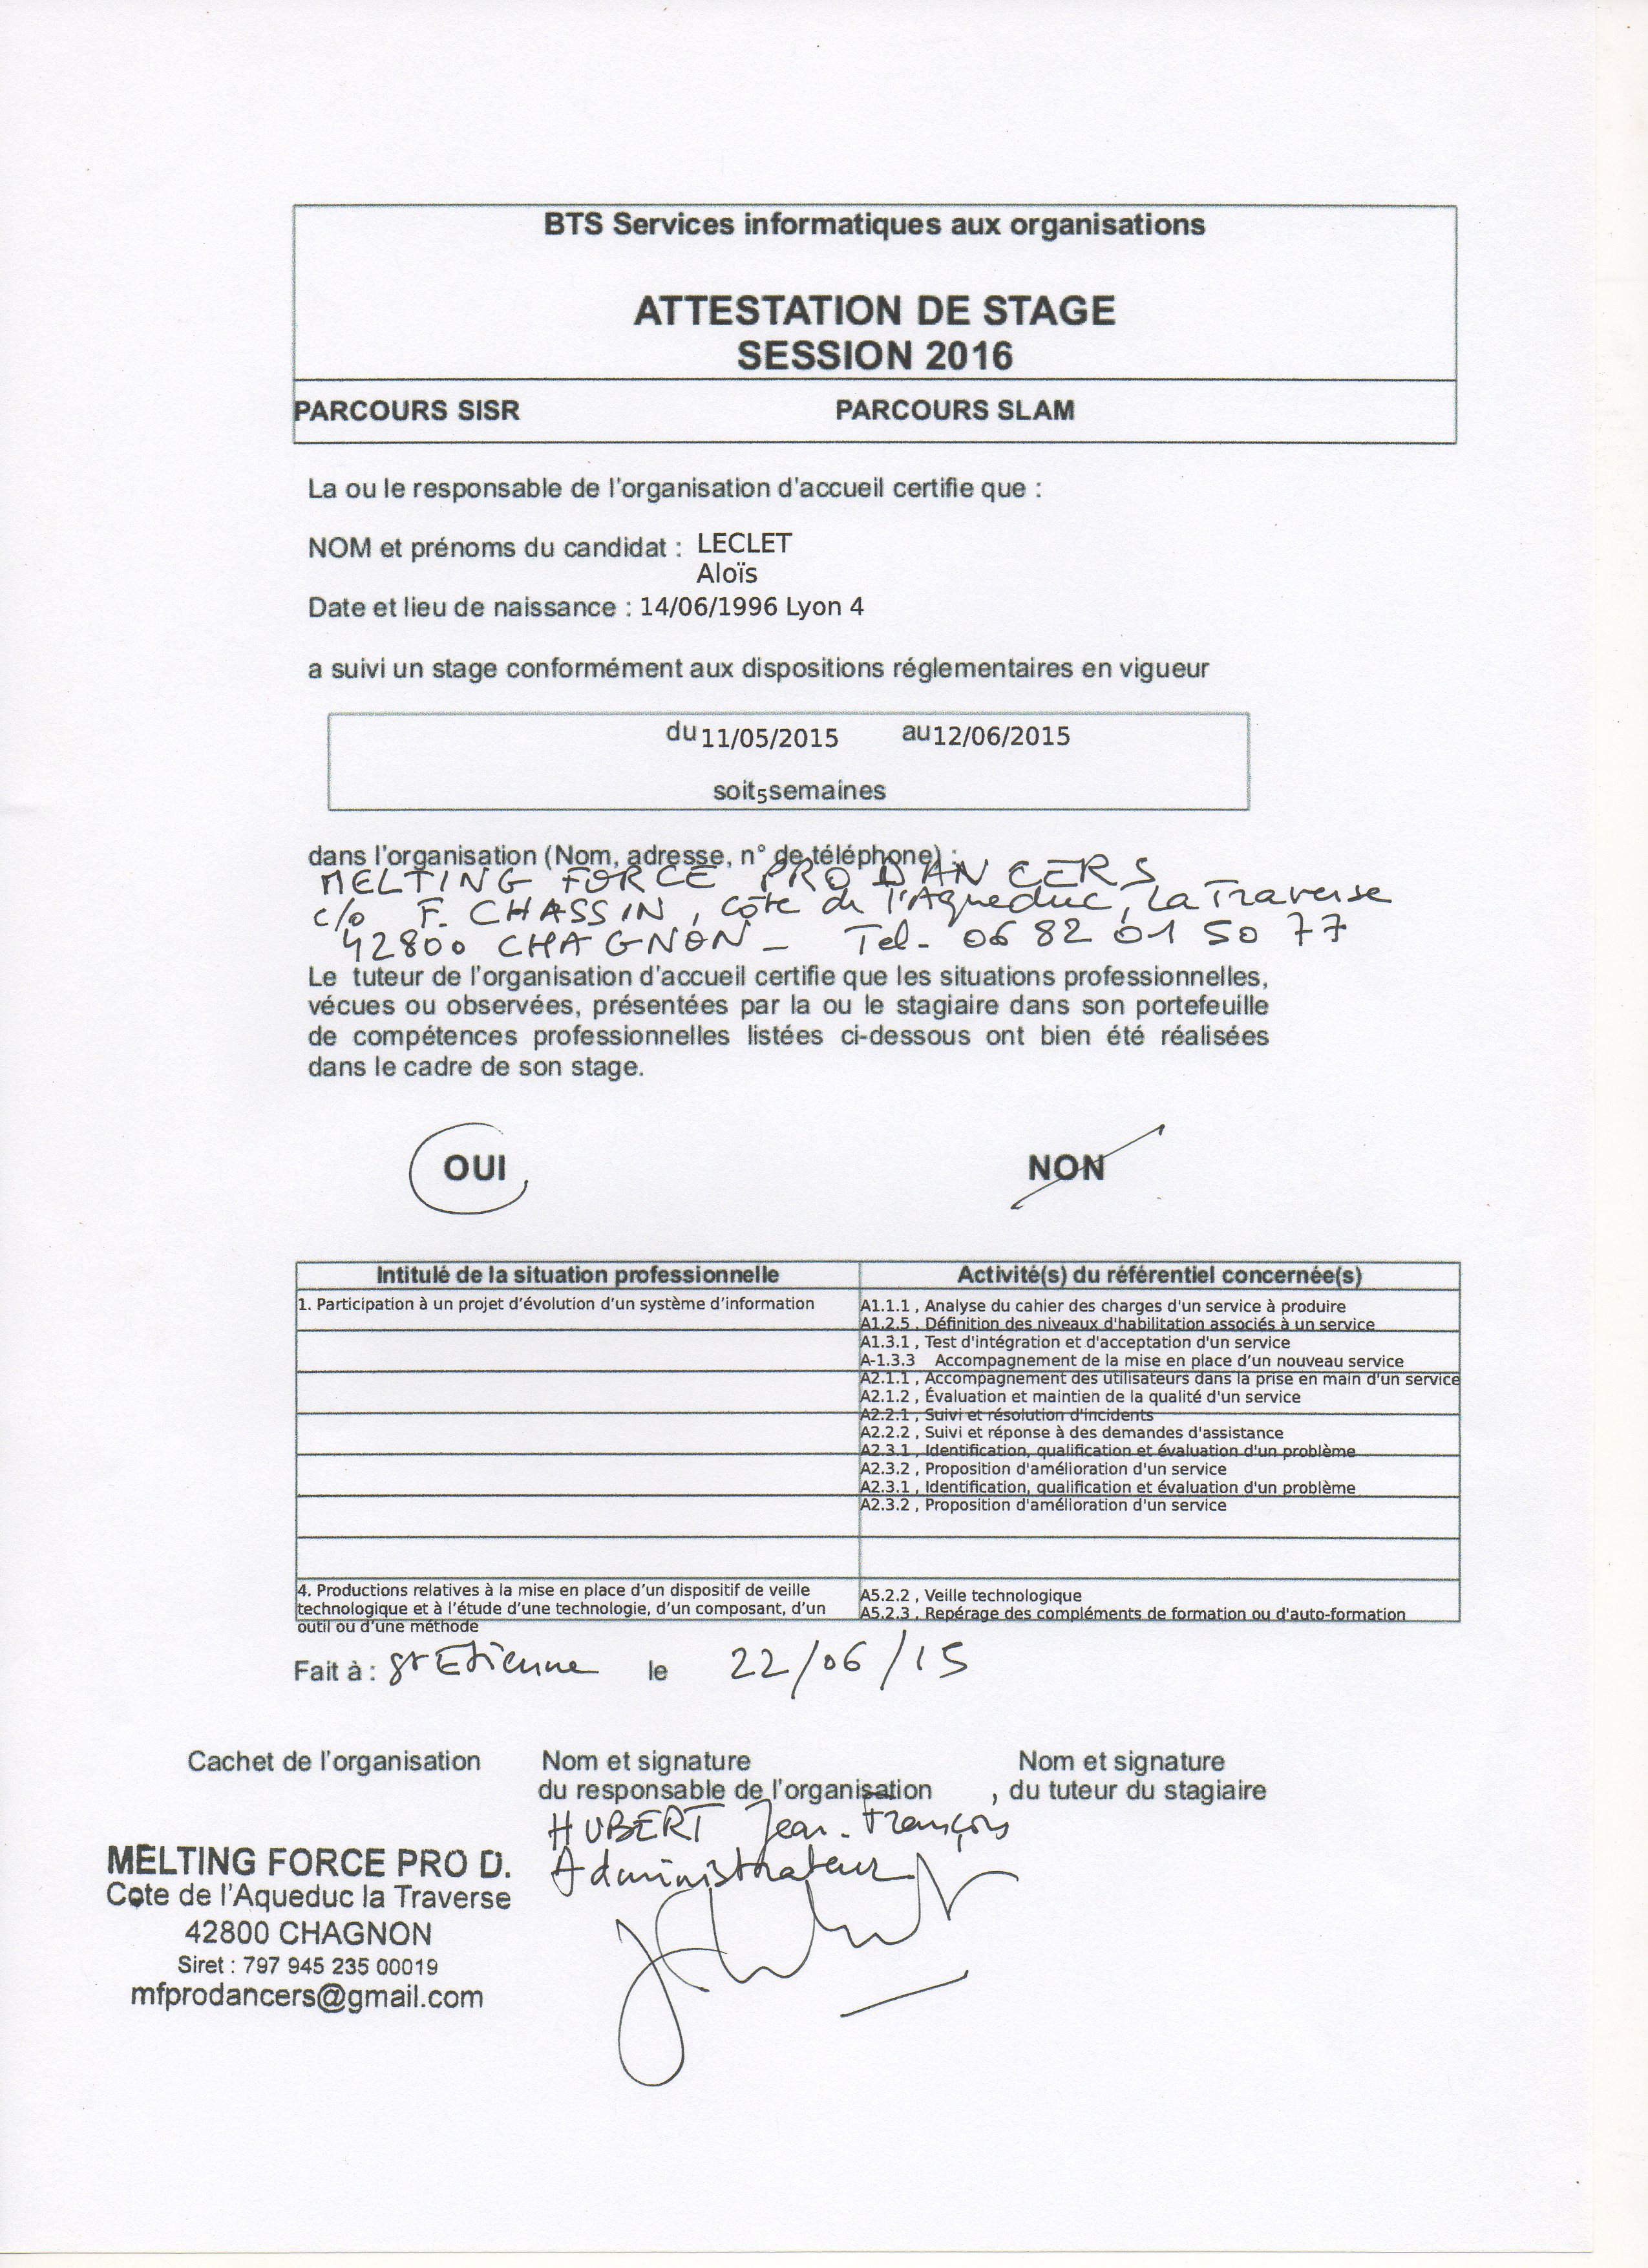 BTS Services informatiques aux organisations
ATTESTATION DE STAGE
SESSION 2016
PARCOURS SISR PARCOURS SLAM
La ou le responsable de l'organisation d'accueil certifie que :
NOM et prénoms du candidat : LECLET
Aloïs
Date et lieu de naissance : 14/06/1996 Lyon 4
a suivi un stage conformément aux dispositions réglementaires en vigueur
du 11/05/2015 au 12/06/2015
soit 5 semaines
dans l'organisation (Nom, adresse, n° de téléphone) :
MELTING FORCE PRO DANCERS
c/o F. CHASSIN, Côte de l'Aqueduc, La Traverse
42800 CHAGNON - Tel. 06 82 01 50 77
Le tuteur de l'organisation d'accueil certifie que les situations professionnelles,
vécues ou observées, présentées par la ou le stagiaire dans son portefeuille
de compétences professionnelles listées ci-dessous ont bien été réalisées
dans le cadre de son stage.
OUI NON
Intitulé de la situation professionnelle Activité(s) du référentiel concernée(s)
1. Participation à un projet d'évolution d'un système d'information A1.1.1 , Analyse du cahier des charges d'un service à produire
A1.2.5 , Définition des niveaux d'habilitation associés à un service
A1.3.1 , Test d'intégration et d'acceptation d'un service
A-1.3.3 Accompagnement de la mise en place d'un nouveau service
A2.1.1 , Accompagnement des utilisateurs dans la prise en main d'un service
A2.1.2 , Évaluation et maintien de la qualité d'un service
A2.2.1 , Suivi et résolution d'incidents
A2.2.2 , Suivi et réponse à des demandes d'assistance
A2.3.1 , Identification, qualification et évaluation d'un problème
A2.3.2 , Proposition d'amélioration d'un service
A2.3.1 , Identification, qualification et évaluation d'un problème
A2.3.2 , Proposition d'amélioration d'un service
4. Productions relatives à la mise en place d'un dispositif de veille A5.2.2 , Veille technologique
technologique et à l'étude d'une technologie, d'un composant, d'un A5.2.3 , Repérage des compléments de formation ou d'auto-formation
outil ou d'une méthode
Fait à : St Etienne le 22/06/15
Cachet de l'organisation Nom et signature Nom et signature
du responsable de l'organisation , du tuteur du stagiaire
HUBERT Jean-François
Administrateur
MELTING FORCE PRO D.
Cote de l'Aqueduc la Traverse
42800 CHAGNON
Siret : 797 945 235 00019
mfprodancers@gmail.com